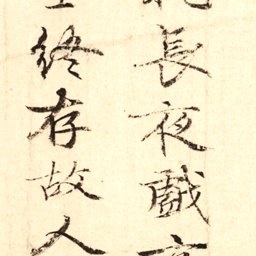 長夜戲
終存故人